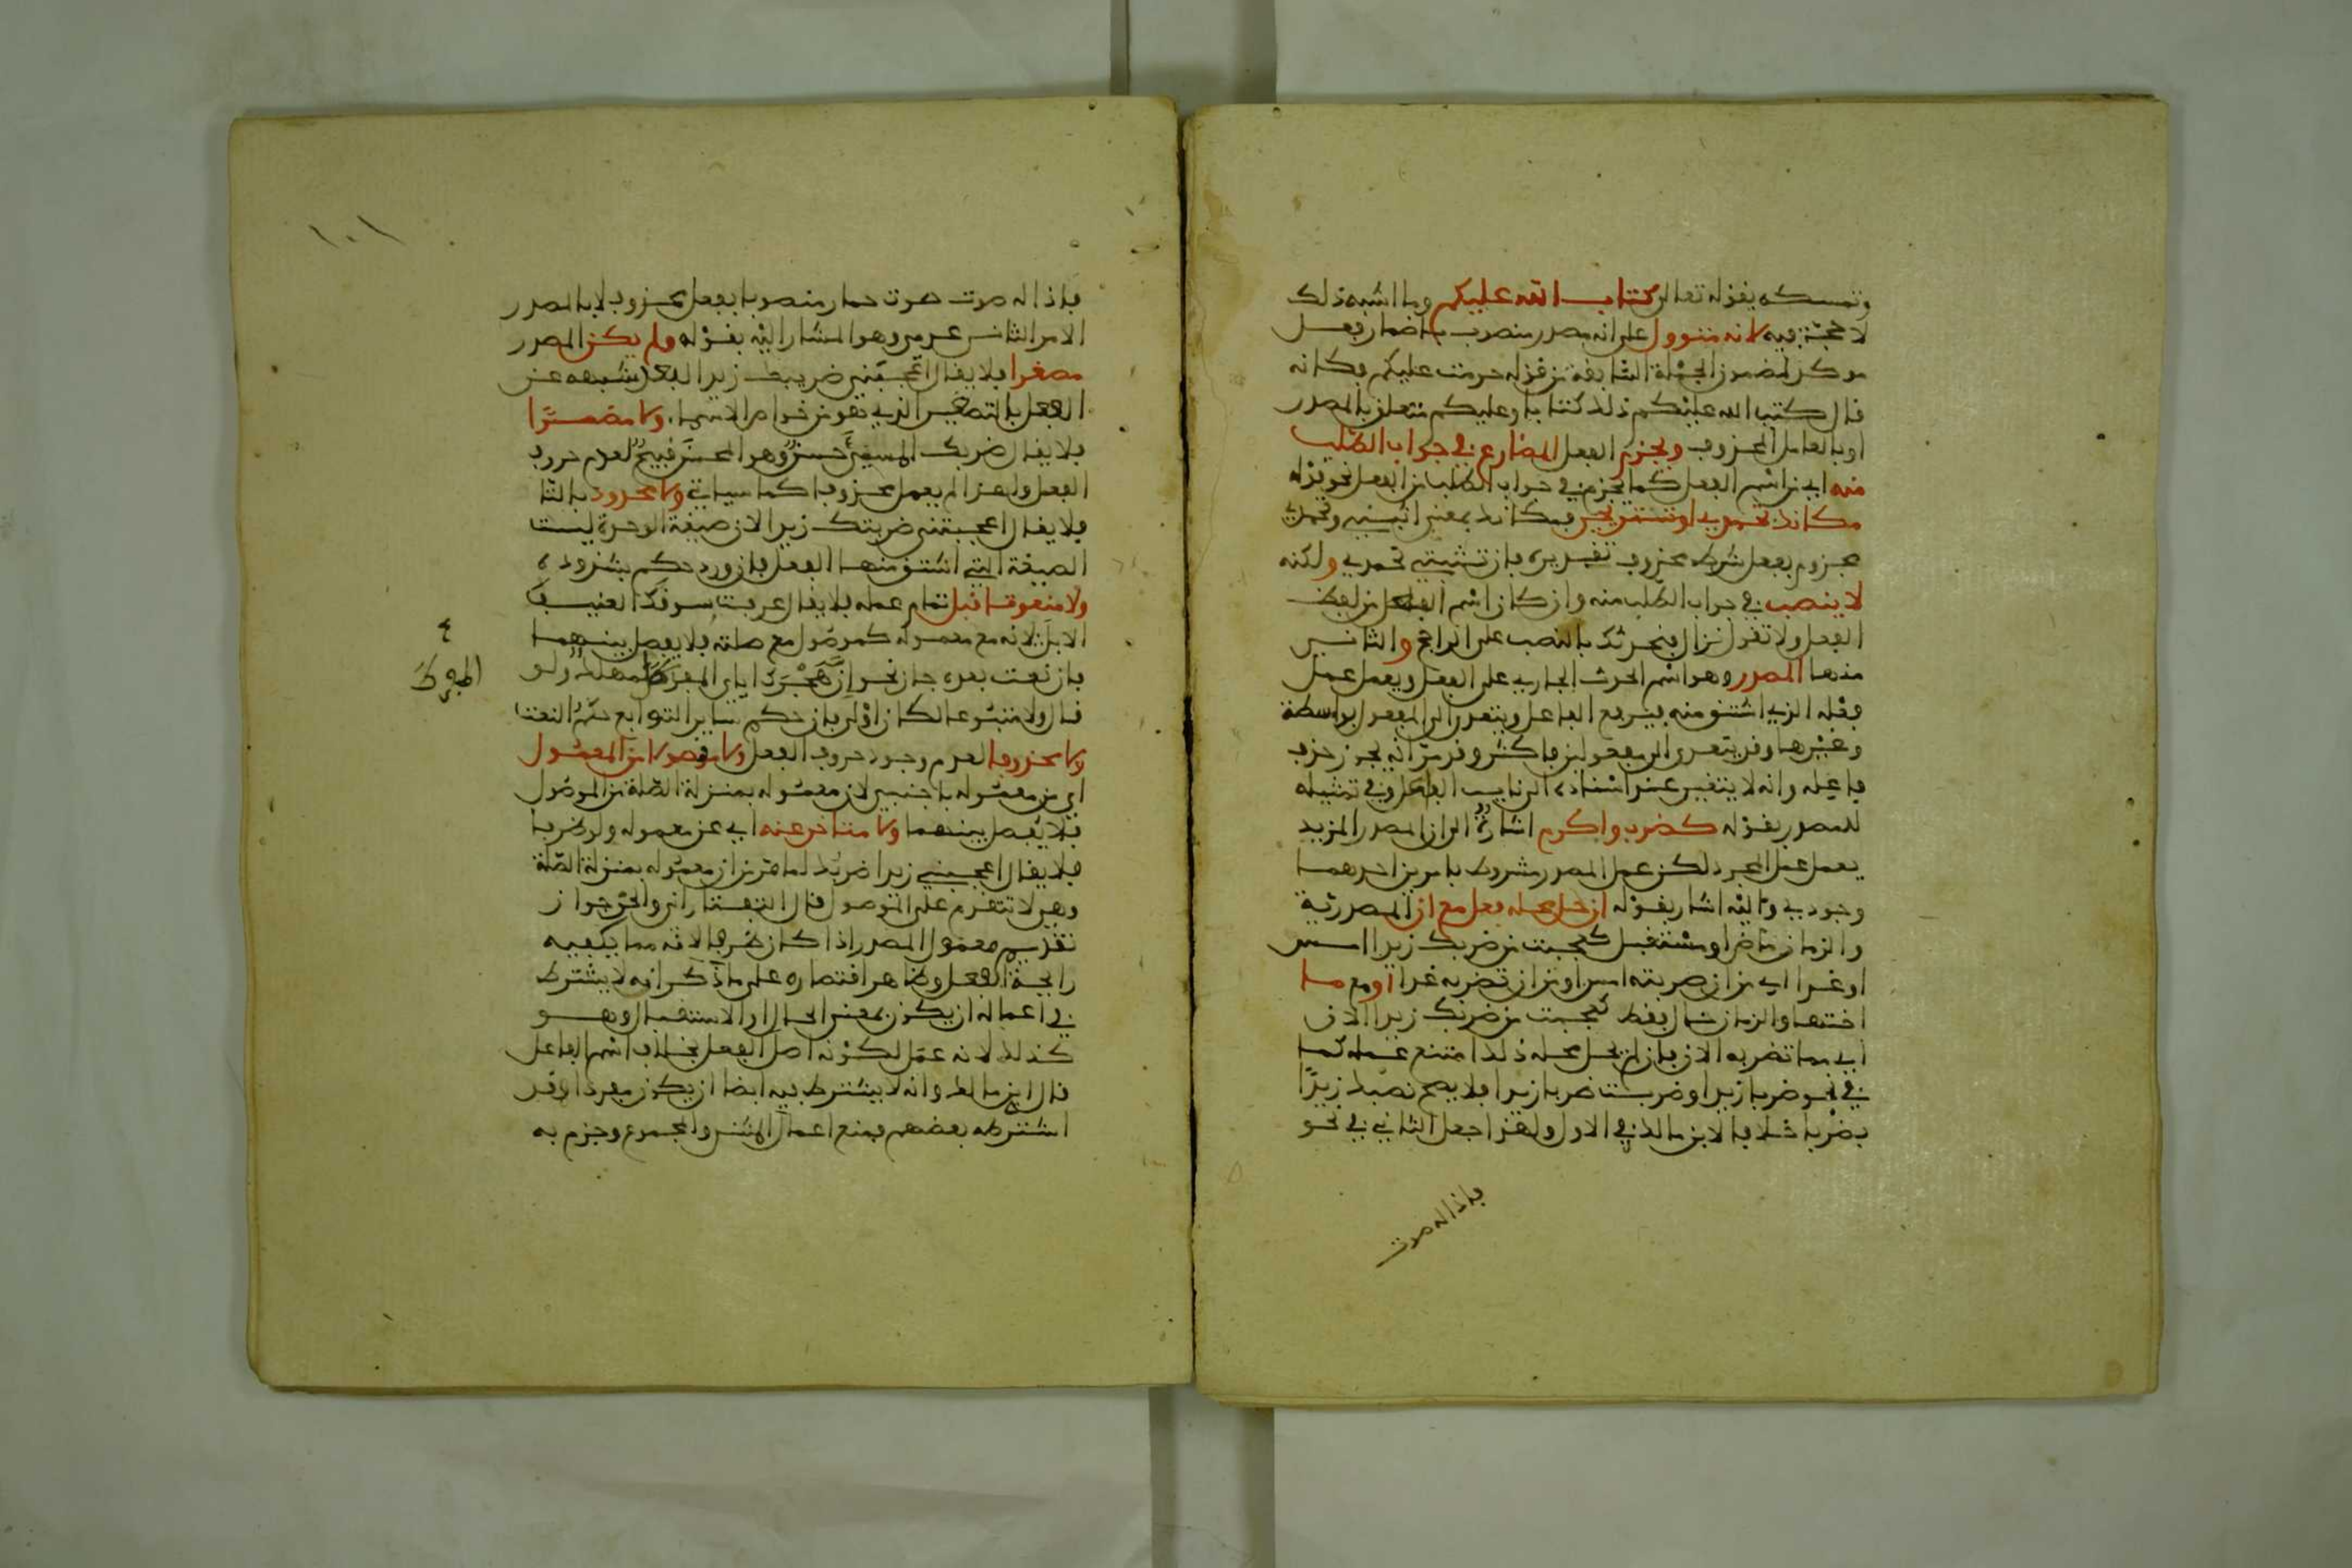 وتمسكه بقوله تعالى كتاب الله عليكم وما اشبه ذلك
لا حجة فيه لانه متوول على انه مصدر منصوب باضمار فعل
موكد لمضمون الجملة السابقة من قوله حرمت عليكم فكانه
قال كتب الله عليكم ذلك كتابا وعليكم متعلق بالمصدر
او بالعامل المحذوف ويجزم الفعل المضارع في جواب الطلب
منه اي من اسم الفعل كما يجزم في جواب الطلب من الفعل نحو قوله
مكانك تحمدي او تستريحي فمكانك بمعنى اثبتي وتحمدي
مجزوم بفعل شرط محذوف تقديره فان تثبتي تحمدي ولكنه
لا ينصب في جواب الطلب منه وان كان اسم الفعل من لفظ
الفعل ولا تقول نزال فنحدثك بالنصب على الراجح والثاني
منها المصدر وهو اسم الحدث الجاري على الفعل ويعمل عمل
فعله الذي اشتق منه فيرفع الفاعل ويتعدى الى المفعول بواسطة
وغيرها وقد يتعدى الى مفعولين فاكثر وقد مر انه يجوز حذف
فاعله وانه لا يتغير عند اسناده الى نايب الفاعل وفي تمثيله
للمصدر بقوله كضرب واكرم اشارة الى ان المصدر المزيد
يعمل عمل المجرد لكن عمل المصدر مشروط بامرين احدهما
وجودي واليه اشار بقوله ان حل محله فعل مع ان المصدرية
والزمان ماض او مستقبل كعجبت من ضربك زيدا امس
او غدا اي من ان ضربته امس او من ان تضربه غدا او مع ما
اختها والزمان حال فقط كعجبت من ضربك زيدا الان
اي مما تضربه الان فان لم يحل محله ذلك امتنع عمله كما
في نحو ضربا زيدا وضربت ضربا زيدا فلا يصح نصبك زيدًا
بضربا خلافا لابن مالك في الاول ولهذا جعل الثاني في نحو
فاذا له صوت
١٠١
فاذا له صوت صوت حمار منصوبا بفعل محذوف لا بالمصدر
الامر الثاني عدمي وهو المشار اليه بقوله ولم يكن المصدر
مصغرا فلا يقال اعجبني ضريبك زيدا لبعد شبهه عن
الفعل بالتصغير الذي هو من خواص الاسماء ولا مضمرًا
فلا يقال ضربك المسيء حسن وهو المحسن قبيح لعدم حروف
الفعل ولهذا لم يعمل محذوفا كما سياتي ولا محدودا بالتا
فلا يقال اعجبتني ضربتك زيدا لان صيغة الوحدة ليست
الصيغة التي اشتق منها الفعل فان ورد حكم بشذوذه
ولا منعوتا قبل تمام عمله فلا يقال عرفت سوقك العنيف
الابل لانه مع معموله كموصول مع صلته فلا يفصل بينهما
فان نعت بعده جاز نحو ان هجرك اياي المفرط مهلك ولو
قال ولا متبوعا لكان اولى فان حكم ساير التوابع حكم النعت
ولا محذوفا لعدم وجود حروف الفعل ولا مفصولا من المعمول
اي من معموله باجنبي لان معموله بمنزلة الصلة من الموصول
فلا يفصل بينهما ولا متاخر عنه اي عن معموله ولو ظرفا
فلا يقال اعجبني زيدا ضربك لما مر من ان معموله بمنزلة الصلة
وهي لا تتقدم على الموصول قال التفتازاني والحق جواز
تقديم معمول المصدر اذا كان ظرفا لانه مما يكفيه
رايحة الفعل وظاهر اقتصاره على ما ذكر انه لا يشترط
في اعماله ان يكون بمعنى الحال او الاستقبال وهو
كذلك لانه عمل لكونه اصل الفعل بخلاف اسم الفاعل
قال ابن مالك وانه لا يشترط فيه ايضا ان يكون مفردا وقد
اشترطه بعضهم فمنع اعمال المثنى والمجموع وجزم به